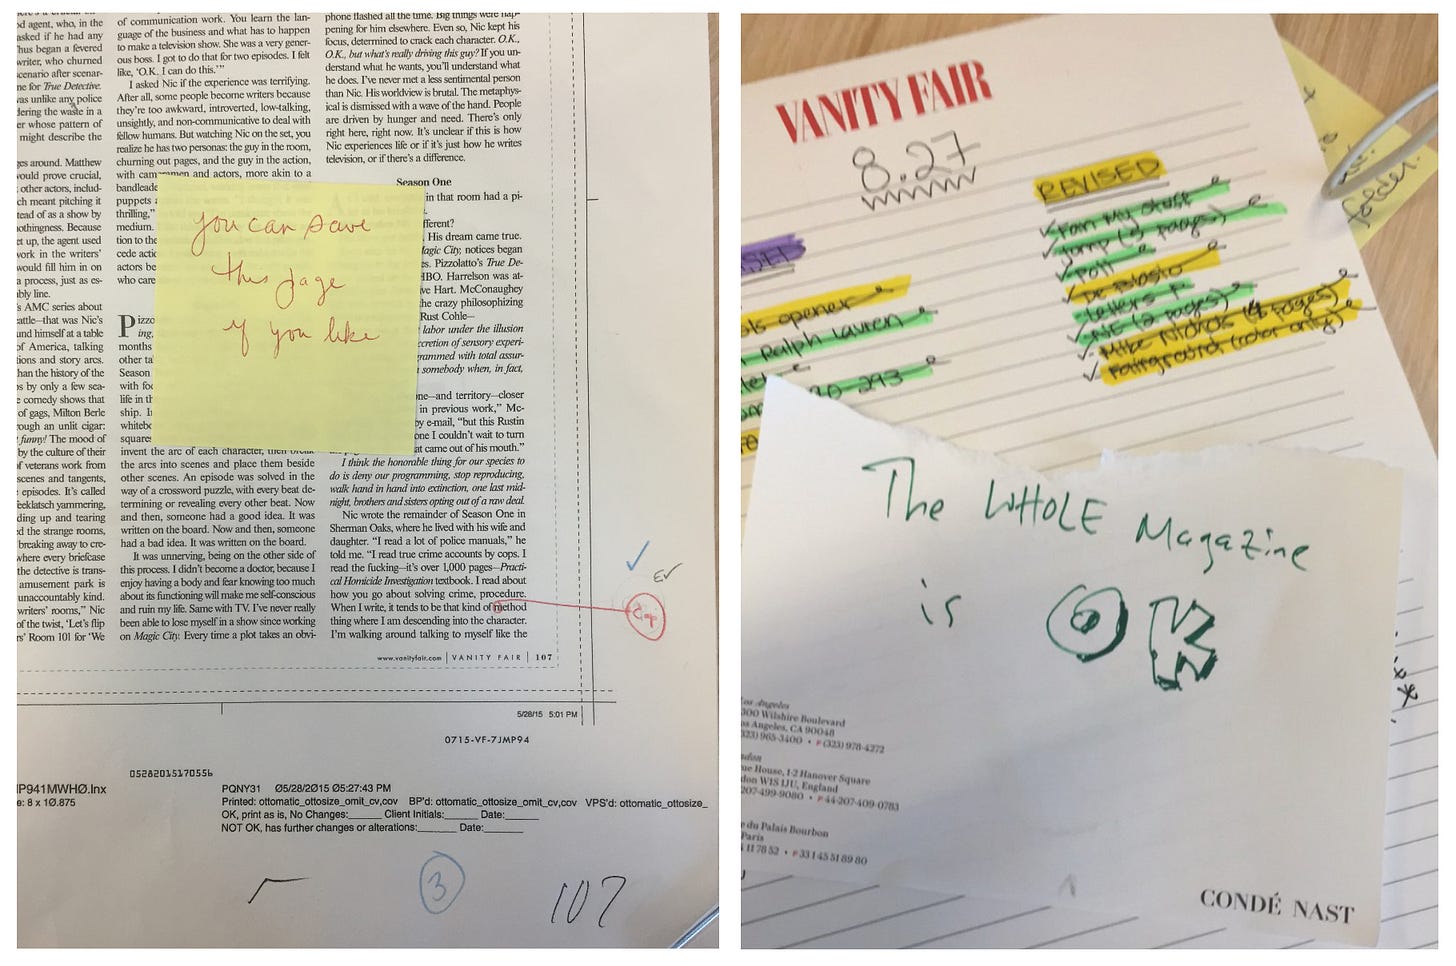 d agent, who, in the
asked if he had any
hus began a fevered
writer, who churned
scenario after scenar-
ne for True Detective.
was unlike any police
dering the waste in a
er whose pattern of
might describe the
ges around. Matthew
would prove crucial,
other actors, includ-
ch meant pitching it
tead of as a show by
nothingness. Because
et up, the agent used
work in the writers'
would fill him in on
a process, just as es-
bly line.
's AMC series about
attle—that was Nic's
und himself at a table
of America, talking
tions and story arcs.
han the history of the
s by only a few sea-
e comedy shows that
of gags, Milton Berle
rough an unlit cigar:
funny! The mood of
by the culture of their
of veterans work from
scenes and tangents,
episodes. It's called
eeklatsch yammering,
ding up and tearing
d the strange rooms,
breaking away to cre-
where every briefcase
the detective is trans-
amusement park is
unaccountably kind.
writers' rooms," Nic
of the twist, 'Let's flip
rs' Room 101 for 'We
of communication work. You learn the lan-
guage of the business and what has to happen
to make a television show. She was a very gener-
ous boss. I got to do that for two episodes. I felt
like, 'O.K. I can do this.'"
I asked Nic if the experience was terrifying.
After all, some people become writers because
they're too awkward, introverted, low-talking,
unsightly, and non-communicative to deal with
fellow humans. But watching Nic on the set, you
realize he has two personas: the guy in the room,
churning out pages, and the guy in the action,
with cameramen and actors, more akin to a
bandleade
puppets
thrilling,"
medium.
tion to the
cede actio
actors be
who care
Pizzo
ing,
months
other ta
Season
with foc
life in th
ship. I
whitebo
squares
invent the arc of each character, then break
the arcs into scenes and place them beside
other scenes. An episode was solved in the
way of a crossword puzzle, with every beat de-
termining or revealing every other beat. Now
and then, someone had a good idea. It was
written on the board. Now and then, someone
had a bad idea. It was written on the board.
It was unnerving, being on the other side of
this process. I didn't become a doctor, because I
enjoy having a body and fear knowing too much
about its functioning will make me self-conscious
and ruin my life. Same with TV. I've never really
been able to lose myself in a show since working
on Magic City. Every time a plot takes an obvi-
phone flashed all the time. Big things were hap-
pening for him elsewhere. Even so, Nic kept his
focus, determined to crack each character. O.K.,
O.K., but what's really driving this guy? If you un-
derstand what he wants, you'll understand what
he does. I've never met a less sentimental person
than Nic. His worldview is brutal. The metaphys-
ical is dismissed with a wave of the hand. People
are driven by hunger and need. There's only
right here, right now. It's unclear if this is how
Nic experiences life or if it's just how he writes
television, or if there's a difference.
Season One
in that room had a pi-
fferent?
His dream came true.
Magic City, notices began
s. Pizzolatto's True De-
HBO. Harrelson was at-
ve Hart. McConaughey
he crazy philosophizing
Rust Cohle—
labor under the illusion
ccretion of sensory experi-
grammed with total assur-
somebody when, in fact,
ne—and territory—closer
in previous work," Mc-
by e-mail, "but this Rustin
one I couldn't wait to turn
at came out of his mouth."
I think the honorable thing for our species to
do is deny our programming, stop reproducing,
walk hand in hand into extinction, one last mid-
night, brothers and sisters opting out of a raw deal.
Nic wrote the remainder of Season One in
Sherman Oaks, where he lived with his wife and
daughter. "I read a lot of police manuals," he
told me. "I read true crime accounts by cops. I
read the fucking—it's over 1,000 pages—Practi-
cal Homicide Investigation textbook. I read about
how you go about solving crime, procedure.
When I write, it tends to be that kind of method
thing where I am descending into the character.
I'm walking around talking to myself like the
you can save
this page
if you like
www.vanityfair.com | VANITY FAIR | 107
5/28/15 5:01 PM
0715-VF-7JMP94
0528201517055b
IP941MWHØ.lnx
e: 8 x 1Ø.875
PQNY31 Ø5/28/2Ø15 Ø5:27:43 PM
Printed: ottomatic_ottosize_omit_cv,cov BP'd: ottomatic_ottosize_omit_cv,cov VPS'd: ottomatic_ottosize_
OK, print as is, No Changes:______ Client Initials:______ Date:______
NOT OK, has further changes or alterations:______ Date:______
3
107
VANITY FAIR
8.27
REVISED
Fan My Stuff
Jump (2 pages)
Poll
De Blasio
Letters
Mike Nichols (4 pages)
Fairground (color only)
ls opener
Ralph Lauren
293
folder.
The WHOLE Magazine
is OK
Los Angeles
300 Wilshire Boulevard
os Angeles, CA 90048
323) 965-3400 • F (323) 978-4272
ndon
ue House, 1-2 Hanover Square
don W1S 1JU, England
207-499-9080 • F 44-207-409-0783
e du Palais Bourbon
Paris
1 11 78 52 • F 33 1 45 51 89 80
CONDÉ NAST